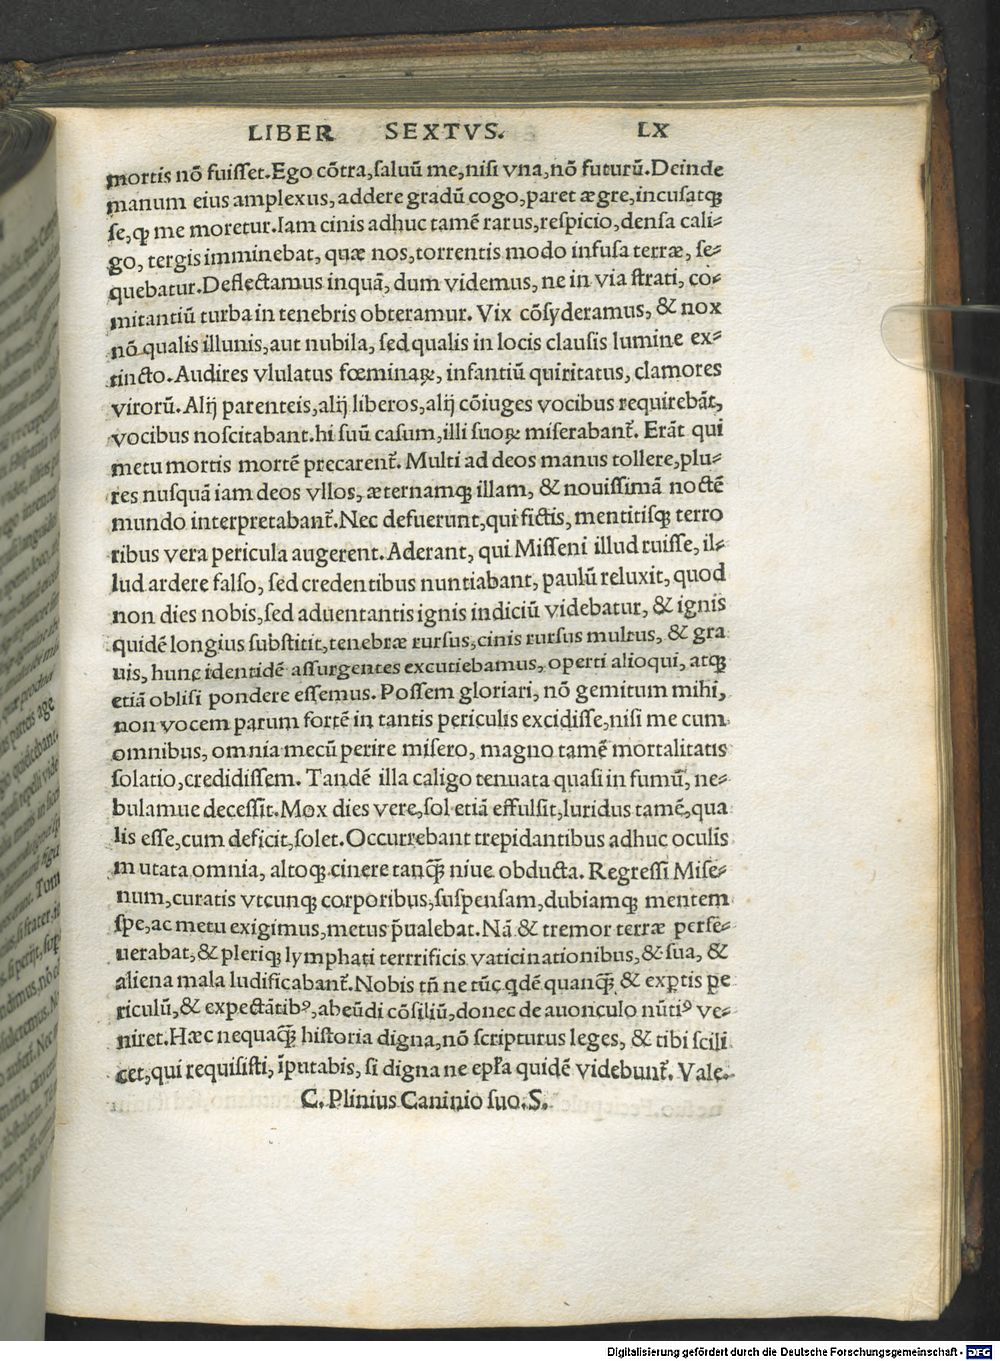 LIBER SEXTVS. LX
mortis nõ fuisset.Ego cõtra,saluũ me,nisi vna,nõ futurũ.Deinde
manum eius amplexus,addere gradũ cogo,paret ægre,incusatqꝫ
se,ꝙ me moretur.Iam cinis adhuc tamẽ rarus,respicio,densa cali-
go, tergis imminebat, quæ nos,torrentis modo infusa terræ, se-
quebatur.Deflectamus inquã, dum videmus, ne in via strati, co-
mitantiũ turba in tenebris obteramur. Vix cõsyderamus, & nox
nõ qualis illunis,aut nubila, sed qualis in locis clausis lumine ex-
tincto.Audires vlulatus fœminaꝝ, infantiũ quiritatus, clamores
virorũ.Alij parenteis,alij liberos,alij cõiuges vocibus requirebãt,
vocibus noscitabant.hi suũ casum,illi suoꝝ miserabant᷑. Erãt qui
metu mortis mortẽ precarent᷑. Multi ad deos manus tollere,plu-
res nusquã iam deos vllos, æternamqꝫ illam, & nouissimã noctẽ
mundo interpretabant᷑.Nec defuerunt,qui fictis, mentitisqꝫ terro
ribus vera pericula augerent.Aderant, qui Misseni illud ruisse, il-
lud ardere falso, sed credentibus nuntiabant, paulũ reluxit, quod
non dies nobis,sed aduentantis ignis indiciũ videbatur, & ignis
quidẽ longius substitit,tenebræ rursus,cinis rursus multus, & gra
uis, hunc identidẽ assurgentes excutiebamus, operti alioqui, atqꝫ
etiã oblisi pondere essemus. Possem gloriari, nõ gemitum mihi,
non vocem parum fortẽ in tantis periculis excidisse,nisi me cum
omnibus, omnia mecũ perire misero, magno tamẽ mortalitatis
solatio,credidissem. Tandẽ illa caligo tenuata quasi in fumũ, ne-
bulamue decessit.Mox dies vere,sol etiã effulsit,luridus tamẽ,qua
lis esse,cum deficit,solet.Occurrebant trepidantibus adhuc oculis
mutata omnia, altoqꝫ cinere tanꝗ̃ niue obducta. Regressi Mise-
num,curatis vtcunqꝫ corporibus,suspensam,dubiamqꝫ mentem
spe,ac metu exigimus,metus p̃ualebat.Nã & tremor terræ perse-
uerabat,& pleriqꝫ lymphati terrrificis vaticinationibus,& sua, &
aliena mala ludificabant᷑.Nobis tñ ne tũc qdẽ quanꝗ̃ & exꝑtis ꝑe
riculũ,& expectãtibꝰ,abeũdi cõsiliũ,donec de auonculo nũtiꝰ ve-
niret.Hæc nequaꝗ̃ historia digna,nõ scripturus leges, & tibi scili
cet,qui requisisti, ĩputabis, si digna ne epĺa quidẽ videbunt᷑. Vale.
C. Plinius Caninio suo.S.
Digitalisierung gefördert durch die Deutsche Forschungsgemeinschaft - DFG